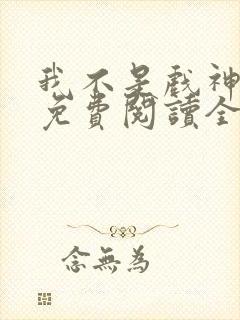 我不是戲神
免費閱讀全
念無為